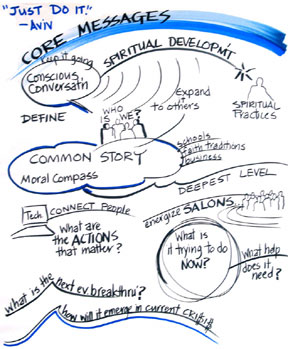 "JUST DO IT."
-AViV
CORE MESSAGES
keep it going
SPIRITUAL DEVELOPMT
Conscious
Conversatn
DEFINE
WHO
IS WE?
Expand
to others
SPIRITUAL
Practices
COMMON STORY
Moral Compass
schools
faith traditions
business
DEEPEST LEVEL
Tech
CONNECT People
What are
the ACTIONS
that matter?
energize SALONS
What is
it trying to do
NOW?
What help
does it
need?
What is the next ev. breakthru?
how will it emerge in current crisis